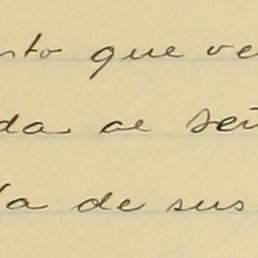 sto que ve
da al señ
a de sus